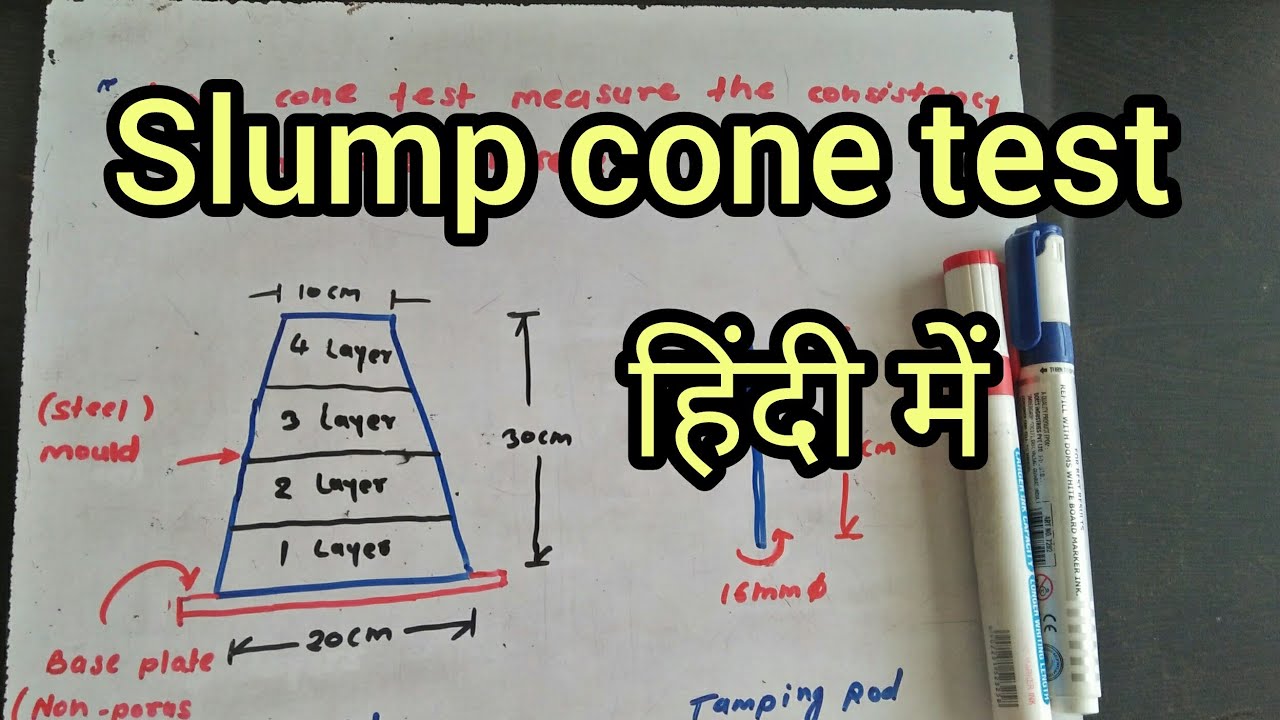 cone test measure the consistency
Slump cone test
हिंदी में
10cm
4 Layer
3 Layer
2 Layer
1 Layer
(steel)
mould
30cm
cm
16mm ϕ
20cm
Base plate
(Non-poras
Tamping Rod
REFILL WITH DOMS WHITE BOARD MARKER INK.